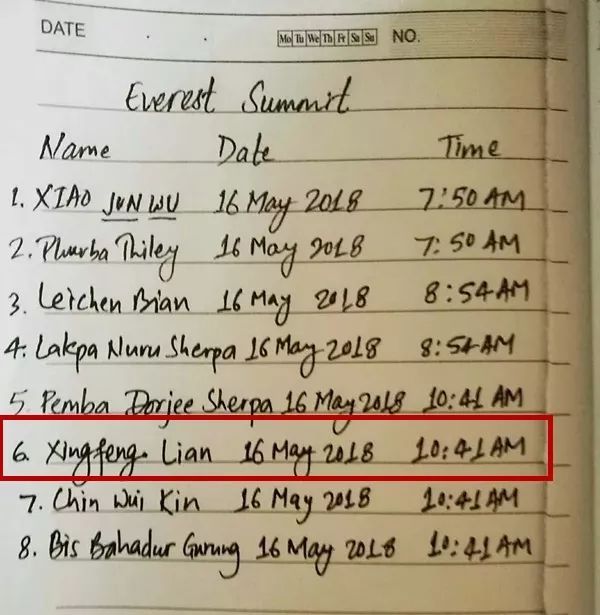 DATE Mo Tu We Th Fr Sa Su NO.
Everest Summit
Name Date Time
1. XIAO JUN WU 16 May 2018 7:50 AM
2. Phurba Thiley 16 May 2018 7:50 AM
3. Leichen Bian 16 May 2018 8:54 AM
4. Lakpa Nuru Sherpa 16 May 2018 8:54 AM
5. Pemba Dorjee Sherpa 16 May 2018 10:41 AM
6. Xingfeng Lian 16 May 2018 10:41 AM
7. Chin Wui Kin 16 May 2018 10:41 AM
8. Bis Bahadur Gurung 16 May 2018 10:41 AM